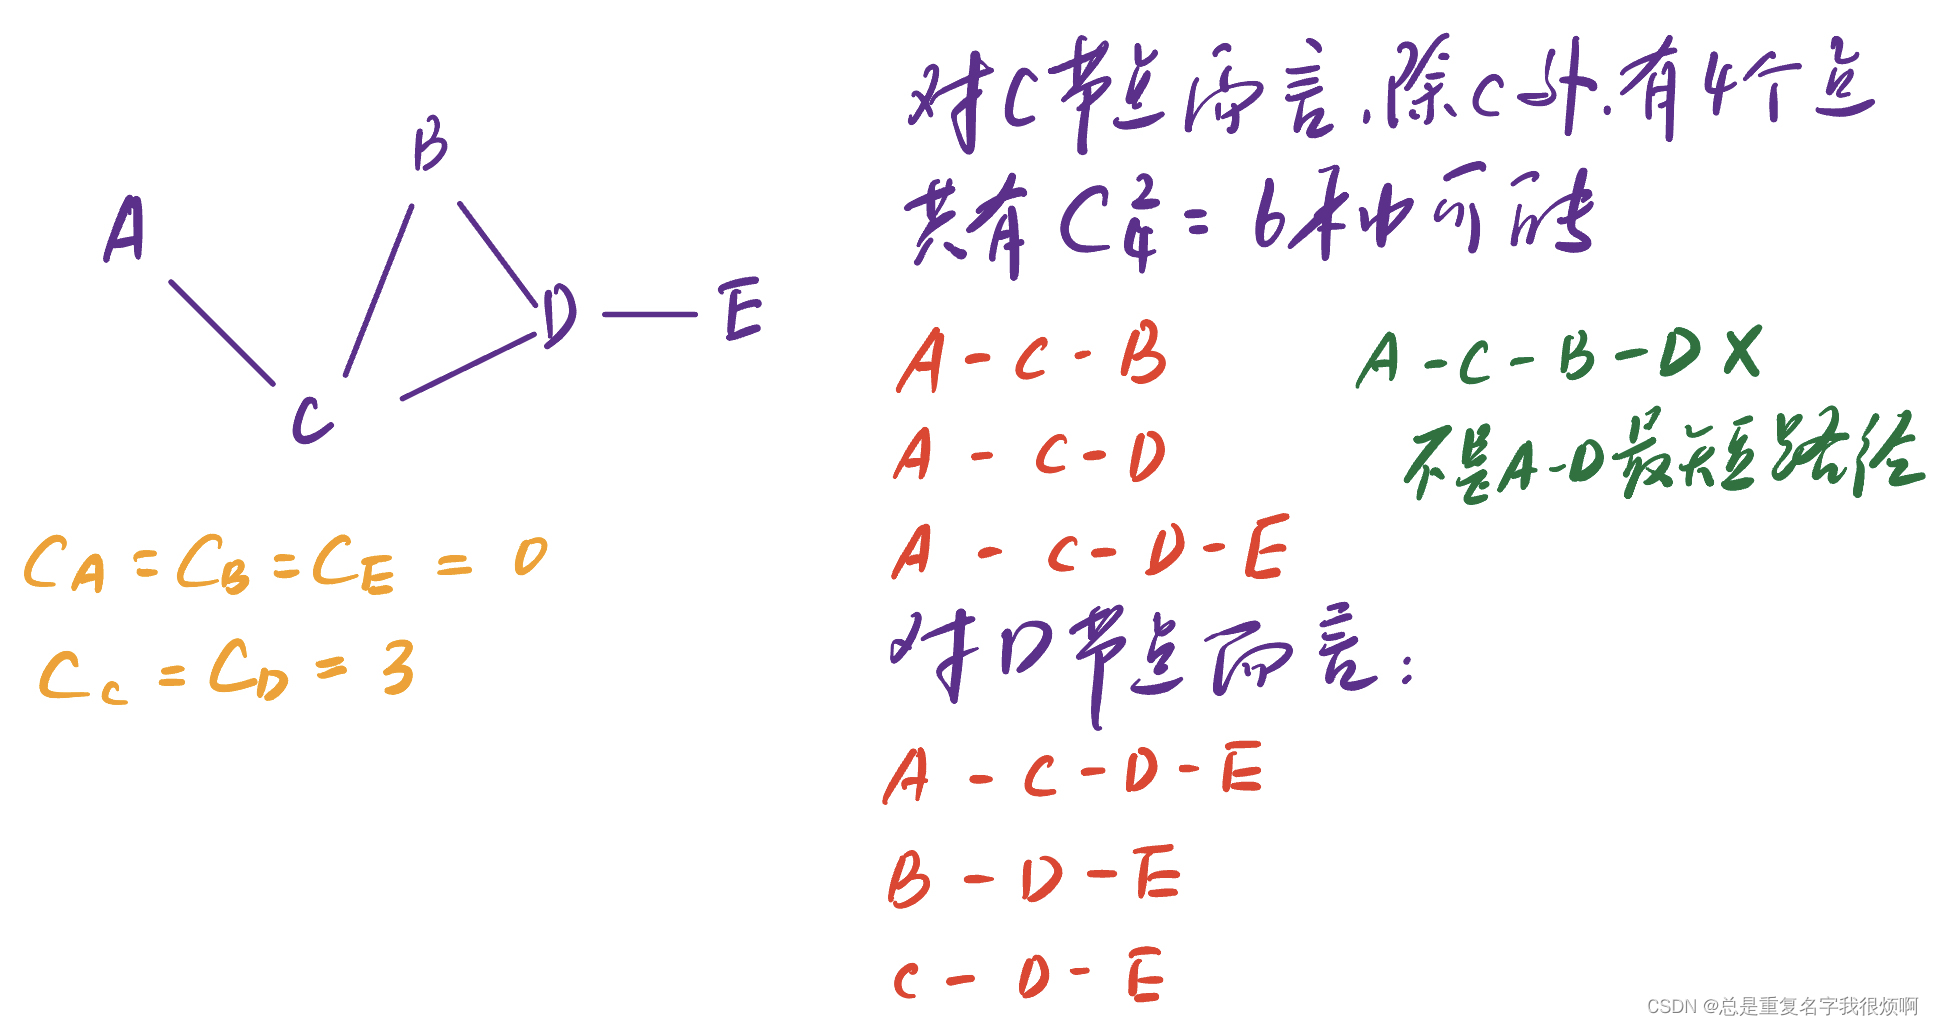 A
B
C
D
E
C_A = C_B = C_E = 0
C_C = C_D = 3
对C节点而言,除C外,有4个点
共有 C₄² = 6种可能
A - C - B
A - C - D
A - C - D - E
A - C - B - D X
不是A-D最短路径
对D节点而言:
A - C - D - E
B - D - E
C - D - E
CSDN @总是重复名字我很烦啊